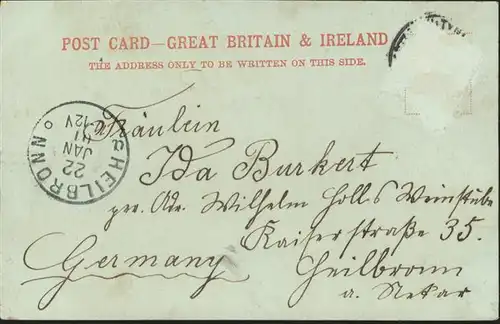 POST CARD—GREAT BRITAIN & IRELAND
THE ADDRESS ONLY TO BE WRITTEN ON THIS SIDE.
HEILBRONN
22
JAN
12V
Fräulein
Ida Burkert
pr. Adr. Wilhelm Holl's Weinstübe
Kaiserstraße 35.
Germany
Heilbronn
a. Nekar